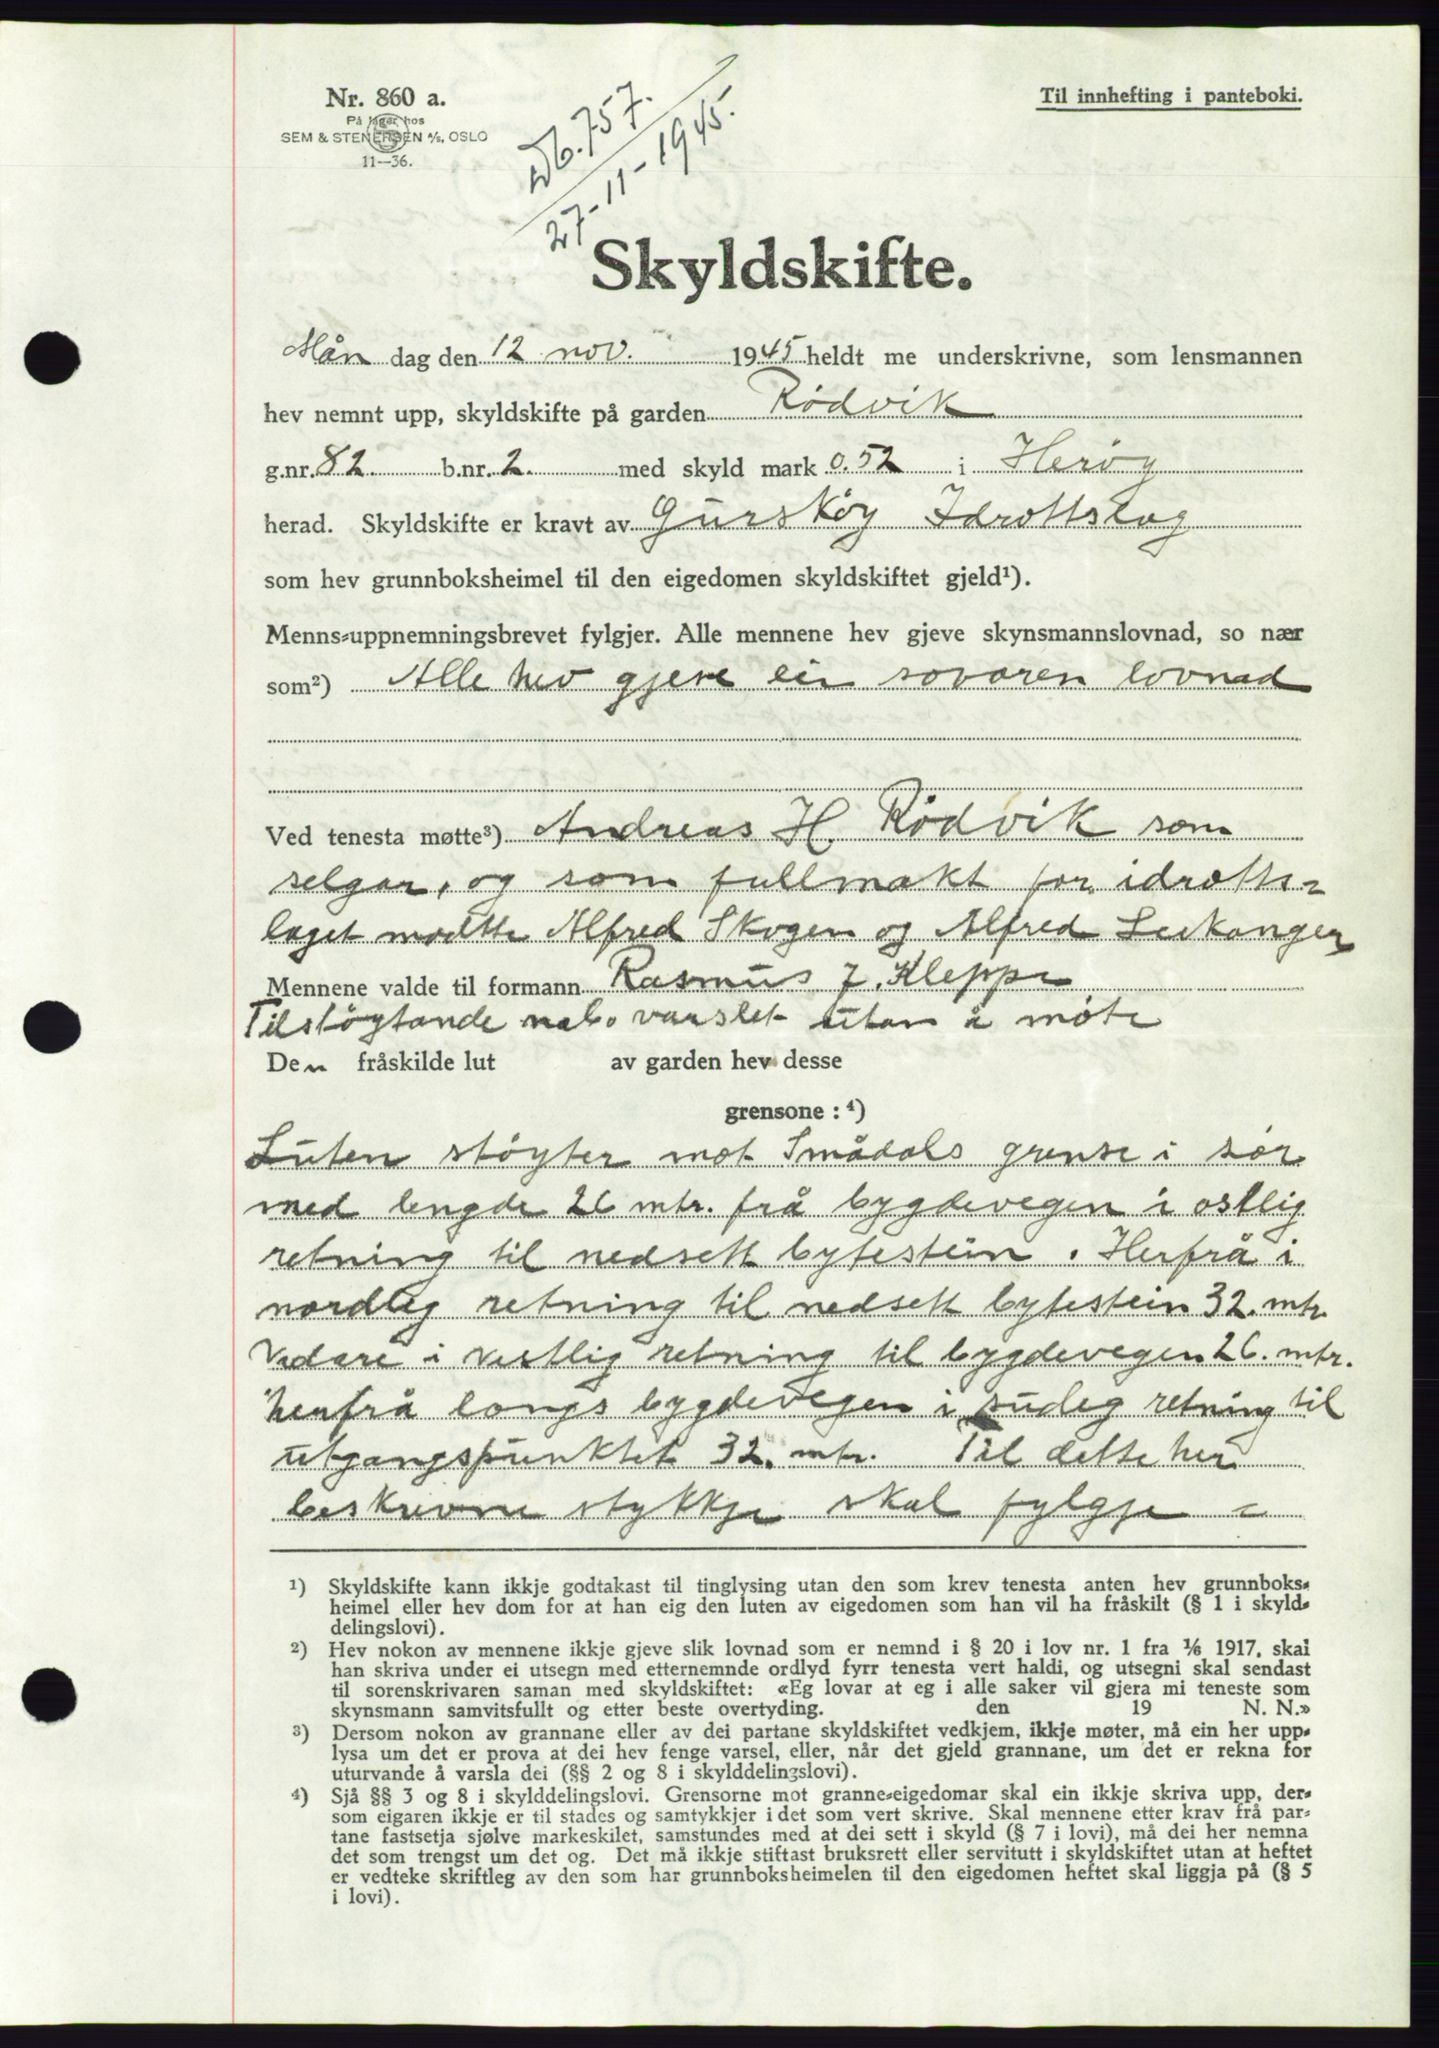 Nr. 860 a.
På lager hos
SEM & STENERSEN A/S, OSLO
11—36.
Til innhefting i panteboki.
Db. 757.
27-11-1945.
Skyldskifte.
Mån dag den 12 nov. 1945 heldt me underskrivne, som lensmannen
hev nemnt upp, skyldskifte på garden Rødvik
g.nr. 82 b.nr. 2. med skyld mark 0.52 i Herøy
herad. Skyldskifte er kravt av Gurskøy Idrottslag
som hev grunnboksheimel til den eigedomen skyldskiftet gjeld¹).
Menns-uppnemningsbrevet fylgjer. Alle mennene hev gjeve skynsmannslovnad, so nær
som²) Alle hev gjeve ein sovoren lovnad
Ved tenesta møtte³) Andreas H. Rødvik som
selgar, og som fullmakt for idrotts=
laget møtte Alfred Skogen og Alfred Leikanger
Mennene valde til formann Rasmus J. Kleppe
Tilstøytande nabo varslet utan å møte
Den fråskilde lut av garden hev desse
grensone : ⁴)
Luten støyter mot Smådals grense i sør
med lengde 26 mtr. frå bygdevegen i ostlig
retning til nedsett bytestein. Herfrå i
nordleg retning til nedsett bytestein 32. mtr.
Vidare i vestlig retning til bygdevegen 26. mtr.
herfrå longs bygdevegen i sudleg retning til
utgangspunktet 32. mtr. Til dette her
beskrevne stykkje skal fylgje =
¹) Skyldskifte kann ikkje godtakast til tinglysing utan den som krev tenesta anten hev grunnboks-
heimel eller hev dom for at han eig den luten av eigedomen som han vil ha fråskilt (§ 1 i skyld-
delingslovi).
²) Hev nokon av mennene ikkje gjeve slik lovnad som er nemnd i § 20 i lov nr. 1 fra 1/6 1917, skal
han skriva under ei utsegn med etternemnde ordlyd fyrr tenesta vert haldi, og utsegni skal sendast
til sorenskrivaren saman med skyldskiftet: «Eg lovar at eg i alle saker vil gjera mi teneste som
skynsmann samvitsfullt og etter beste overtyding. den 19 N. N.»
³) Dersom nokon av grannane eller av dei partane skyldskiftet vedkjem, ikkje møter, må ein her upp-
lysa um det er prova at dei hev fenge varsel, eller, når det gjeld grannane, um det er rekna for
uturvande å varsla dei (§§ 2 og 8 i skylddelingslovi).
⁴) Sjå §§ 3 og 8 i skylddelingslovi. Grensorne mot granne-eigedomar skal ein ikkje skriva upp, der-
som eigaren ikkje er til stades og samtykkjer i det som vert skrive. Skal mennene etter krav frå par-
tane fastsetja sjølve markeskilet, samstundes med at dei sett i skyld (§ 7 i lovi), må dei her nemna
det som trengst um det og. Det må ikkje stiftast bruksrett eller servitutt i skyldskiftet utan at heftet
er vedteke skriftleg av den som har grunnboksheimelen til den eigedomen heftet skal liggja på (§ 5
i lovi).